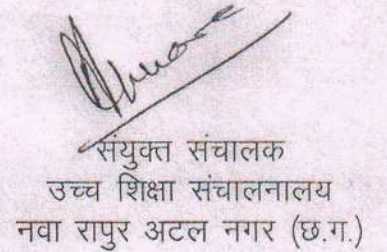 संयुक्त संचालक
उच्च शिक्षा संचालनालय
नवा रापुर अटल नगर (छ.ग.)